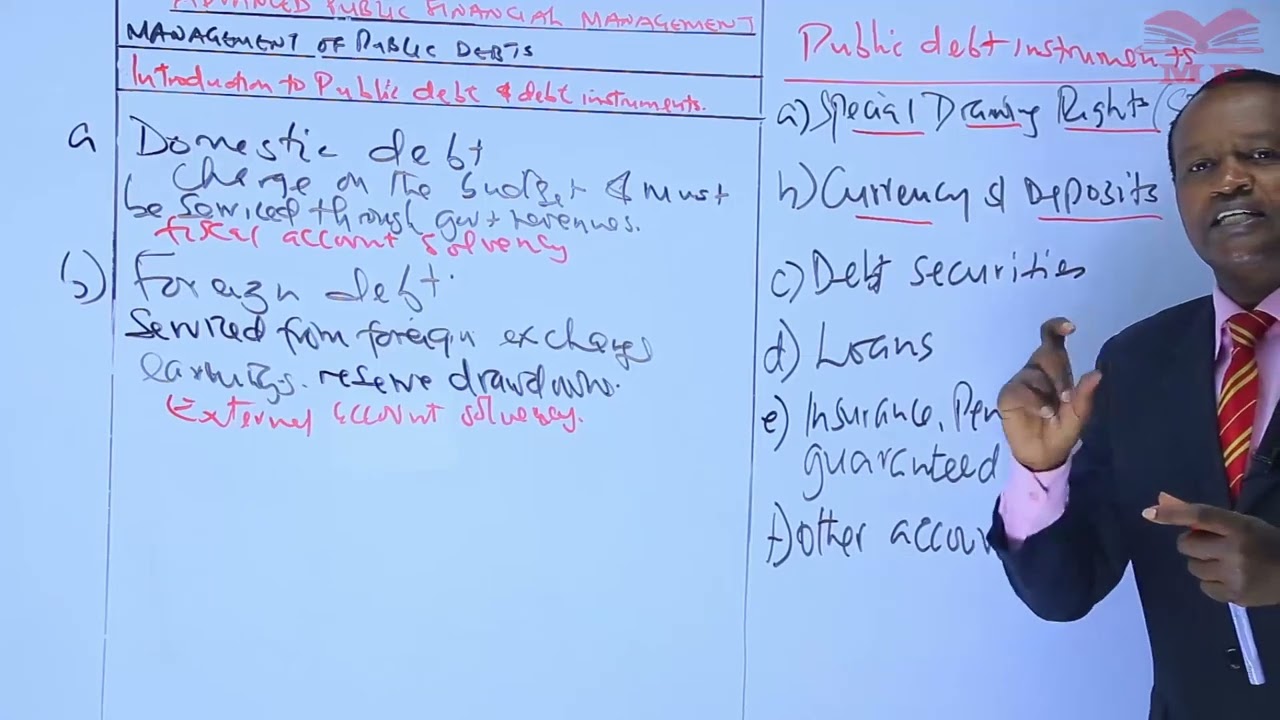 ADVANCED PUBLIC FINANCIAL MANAGEMENT
MANAGEMENT OF PUBLIC DEBTS
Introduction to Public debt & debt instruments.
a Domestic debt
Charge on the budget & must
be serviced through govt revenues.
fiscal account solvency
b) Foreign debt
Serviced from foreign exchange
earnings. reserve drawdowns.
External account solvency.
Public debt instruments
a) Special Drawing Rights (
b) Currency & Deposits
c) Debt securities
d) Loans
e) Insurance, Pen
guaranteed
f) other accoun